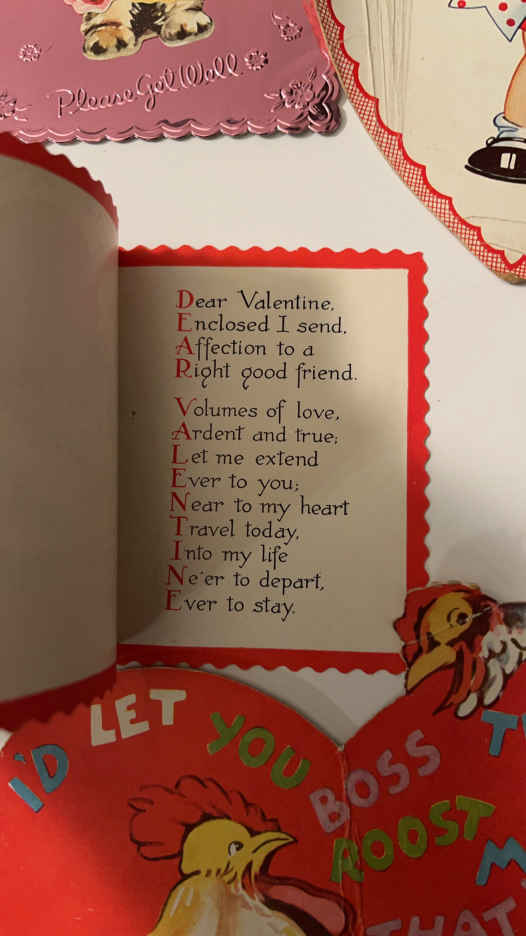 Please Get Well
Dear Valentine,
Enclosed I send,
Affection to a
Right good friend.
Volumes of love,
Ardent and true;
Let me extend
Ever to you;
Near to my heart
Travel today,
Into my life
Ne'er to depart,
Ever to stay.
I'D LET YOU
BOSS
ROOST